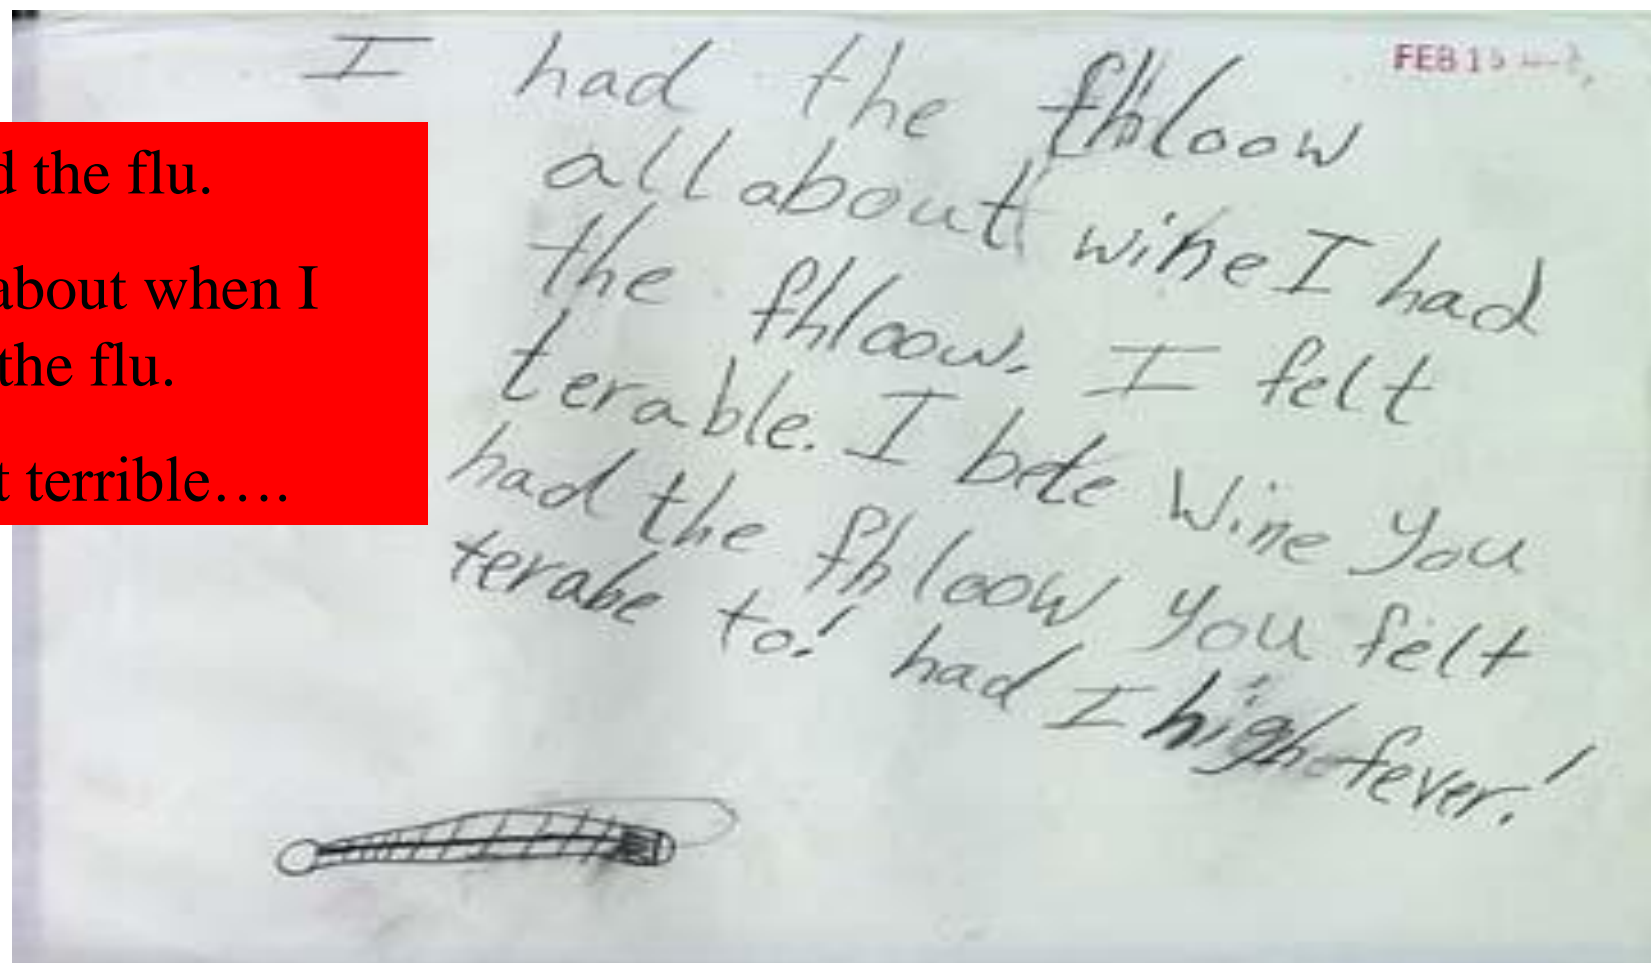 I had the fhloow
all about wine I had
the fhloow. I felt
terable. I bete Wine you
had the fhloow you felt
terabe to! had I high fever!
FEB 15
d the flu.
about when I
the flu.
t terrible….